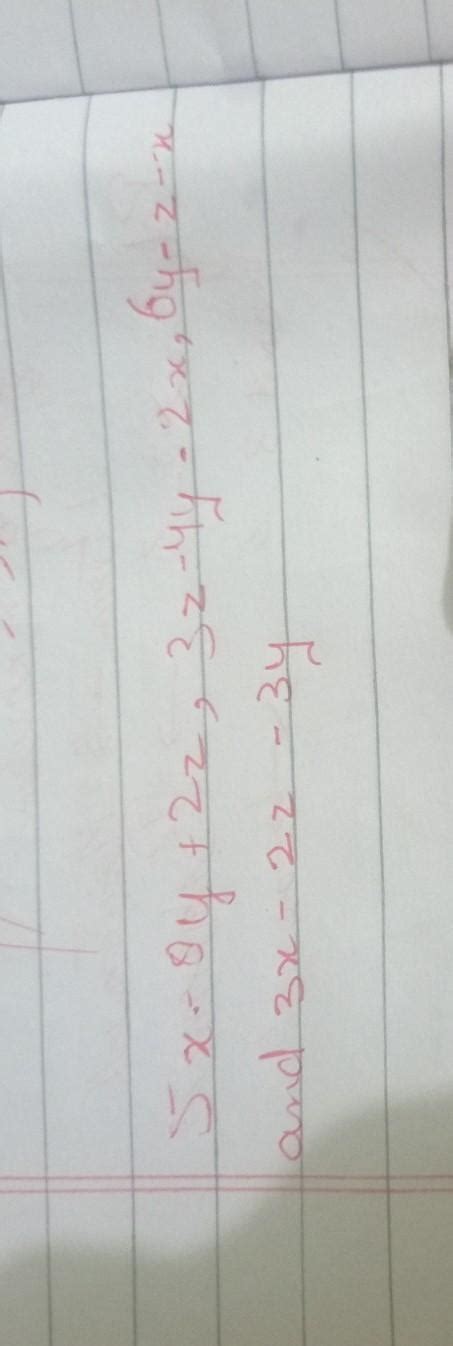 5x-8y+2z, 3z-4y-2x, 6y-z-x
and 3x-2z-3y